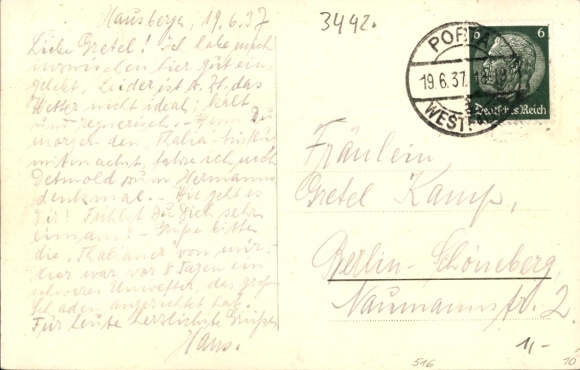 Hausberge, 19.6.37
Liebe Gretel! Ich habe mich
inzwischen hier gut ein-
gelebt. Leider ist z. Zt. das
Wetter nicht ideal; kalt
und regnerisch. - Wenn Du
morgen den Thalia-Ausflug
mitmachst, fahre ich nach
Detmold zum Hermanns-
denkmal. - Wie geht es
Dir? Fühlst Du Dich sehr
einsam? - Grüße bitte
die "Thalianer" von mir.
Hier war vor 8 Tagen ein
schweres Unwetter, das große
Schaden angerichtet hat.
Für heute herzlichste Grüße
Hans.
3442.
PORTA
19.6.37.
WESTF.
6 6
Deutsches Reich
Fräulein
Gretel Kamp,
Berlin-Schöneberg
Naumannstr. 2
1,-
516
10